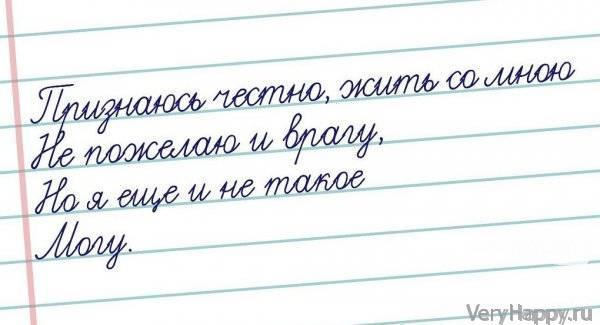 Признаюсь честно, жить со мною
Не пожелаю и врагу,
Но я еще и не такое
Могу.
VeryHappy.ru